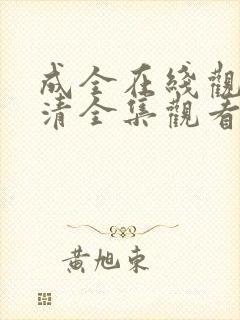 成全在綫觀
清全集觀看
黃旭東